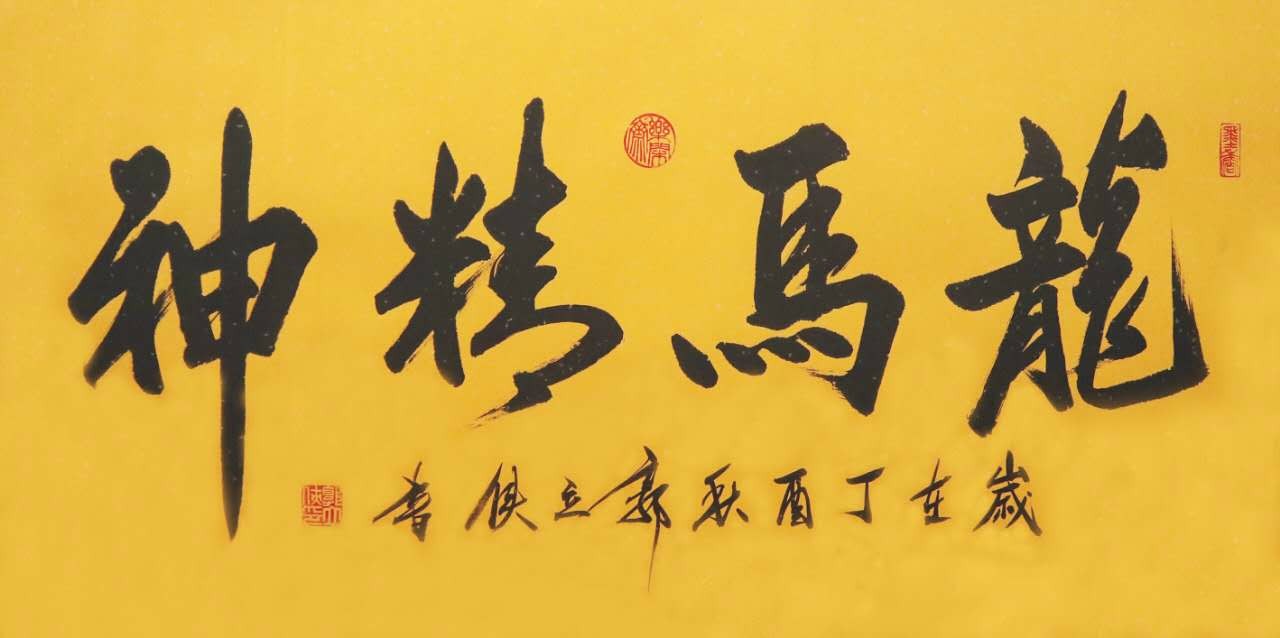 龍馬精神
歲在丁酉秋郭立書